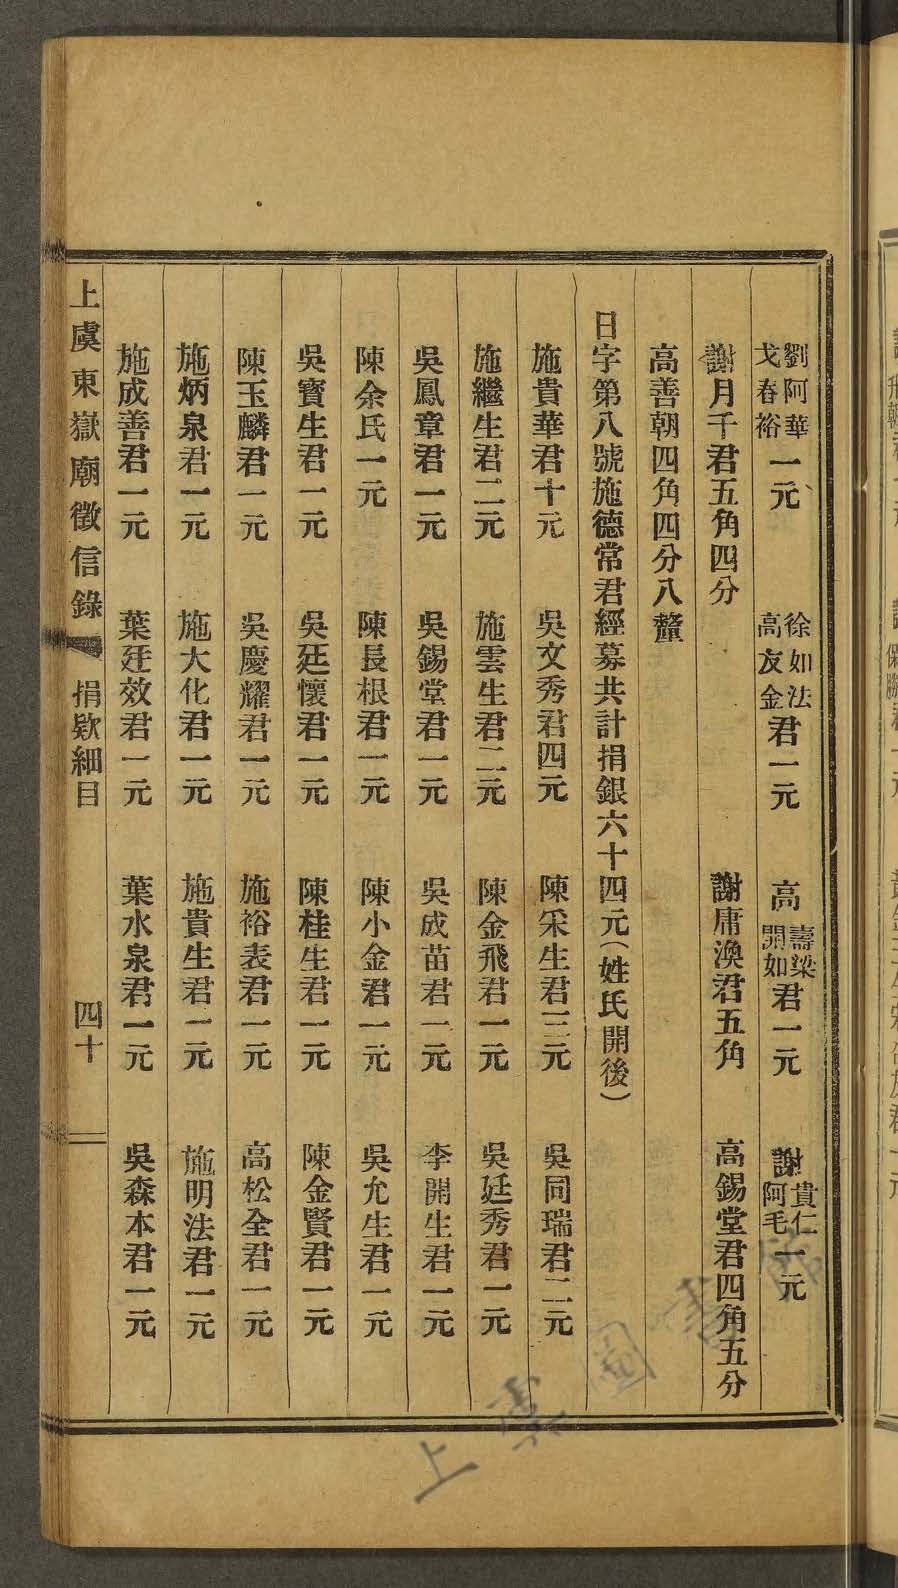 劉阿華戈春裕一元　徐如法高友金君一元　高壽梁開如君一元　謝貴仁阿毛一元
謝月千君五角四分　謝庸渙君五角　高錫堂君四角五分
高善朝四角四分八釐
日字第八號施德常君經募共計捐銀六十四元（姓氏開後）
施貴華君十元　吳文秀君四元　陳罙生君三元　吳同瑞君二元
施繼生君二元　施雲生君二元　陳金飛君一元　吳廷秀君一元
吳鳳章君一元　吳錫堂君一元　吳成苗君一元　李開生君一元
陳余氏一元　陳長根君一元　陳小金君一元　吳允生君一元
吳寶生君一元　吳廷懷君一元　陳桂生君一元　陳金賢君一元
陳玉麟君一元　吳慶耀君一元　施裕表君一元　高松全君一元
施炳泉君一元　施大化君一元　施貴生君一元　施明法君一元
施成善君一元　葉廷效君一元　葉水泉君一元　吳森本君一元
上虞東嶽廟徵信錄　捐欵細目　四十
上虞圖書館